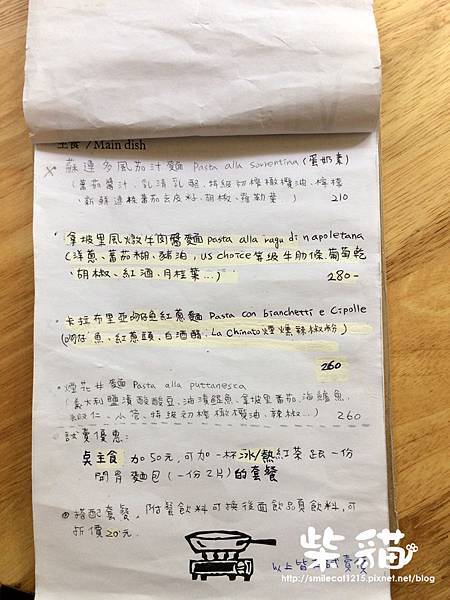 主食 / Main dish
蘇連多風茄汁麵 Pasta alla sorrentina (蛋奶素)
(蕃茄醬汁、乳清乳酪、特級初榨橄欖油、檸檬
、新鮮連枝蕃茄去皮籽、胡椒、羅勒葉 ) 210
拿坡里風燉牛肉醬麵 pasta alla ragu di napoletana
(洋蔥、蕃茄糊、豬油, US choice等級牛肋條、葡萄乾
、胡椒、紅酒、月桂葉...) 280-
卡拉布里亞吻仔魚紅蔥麵 Pasta con bianchetti e Cipolle
(吻仔魚、紅蔥頭、白酒醋、La Chinato煙燻辣椒粉)
260
煙花井麵 Pasta alla puttanesca
(義大利鹽漬酸酸豆、油漬鯷魚、拿坡里蕃茄、海鱺魚、
蝦仁、小卷、特級初榨橄欖油、辣椒...) 260
試賣優惠:
點主食 加50元,可加一杯冰/熱紅茶跟一份
開胃麵包(一份2片)的套餐
搭配套餐, 附餐飲料可換後面飲品頁飲料,可
折價20元.
以上皆為試賣價
柴貓
http://smilecat1215.pixnet.net/blog